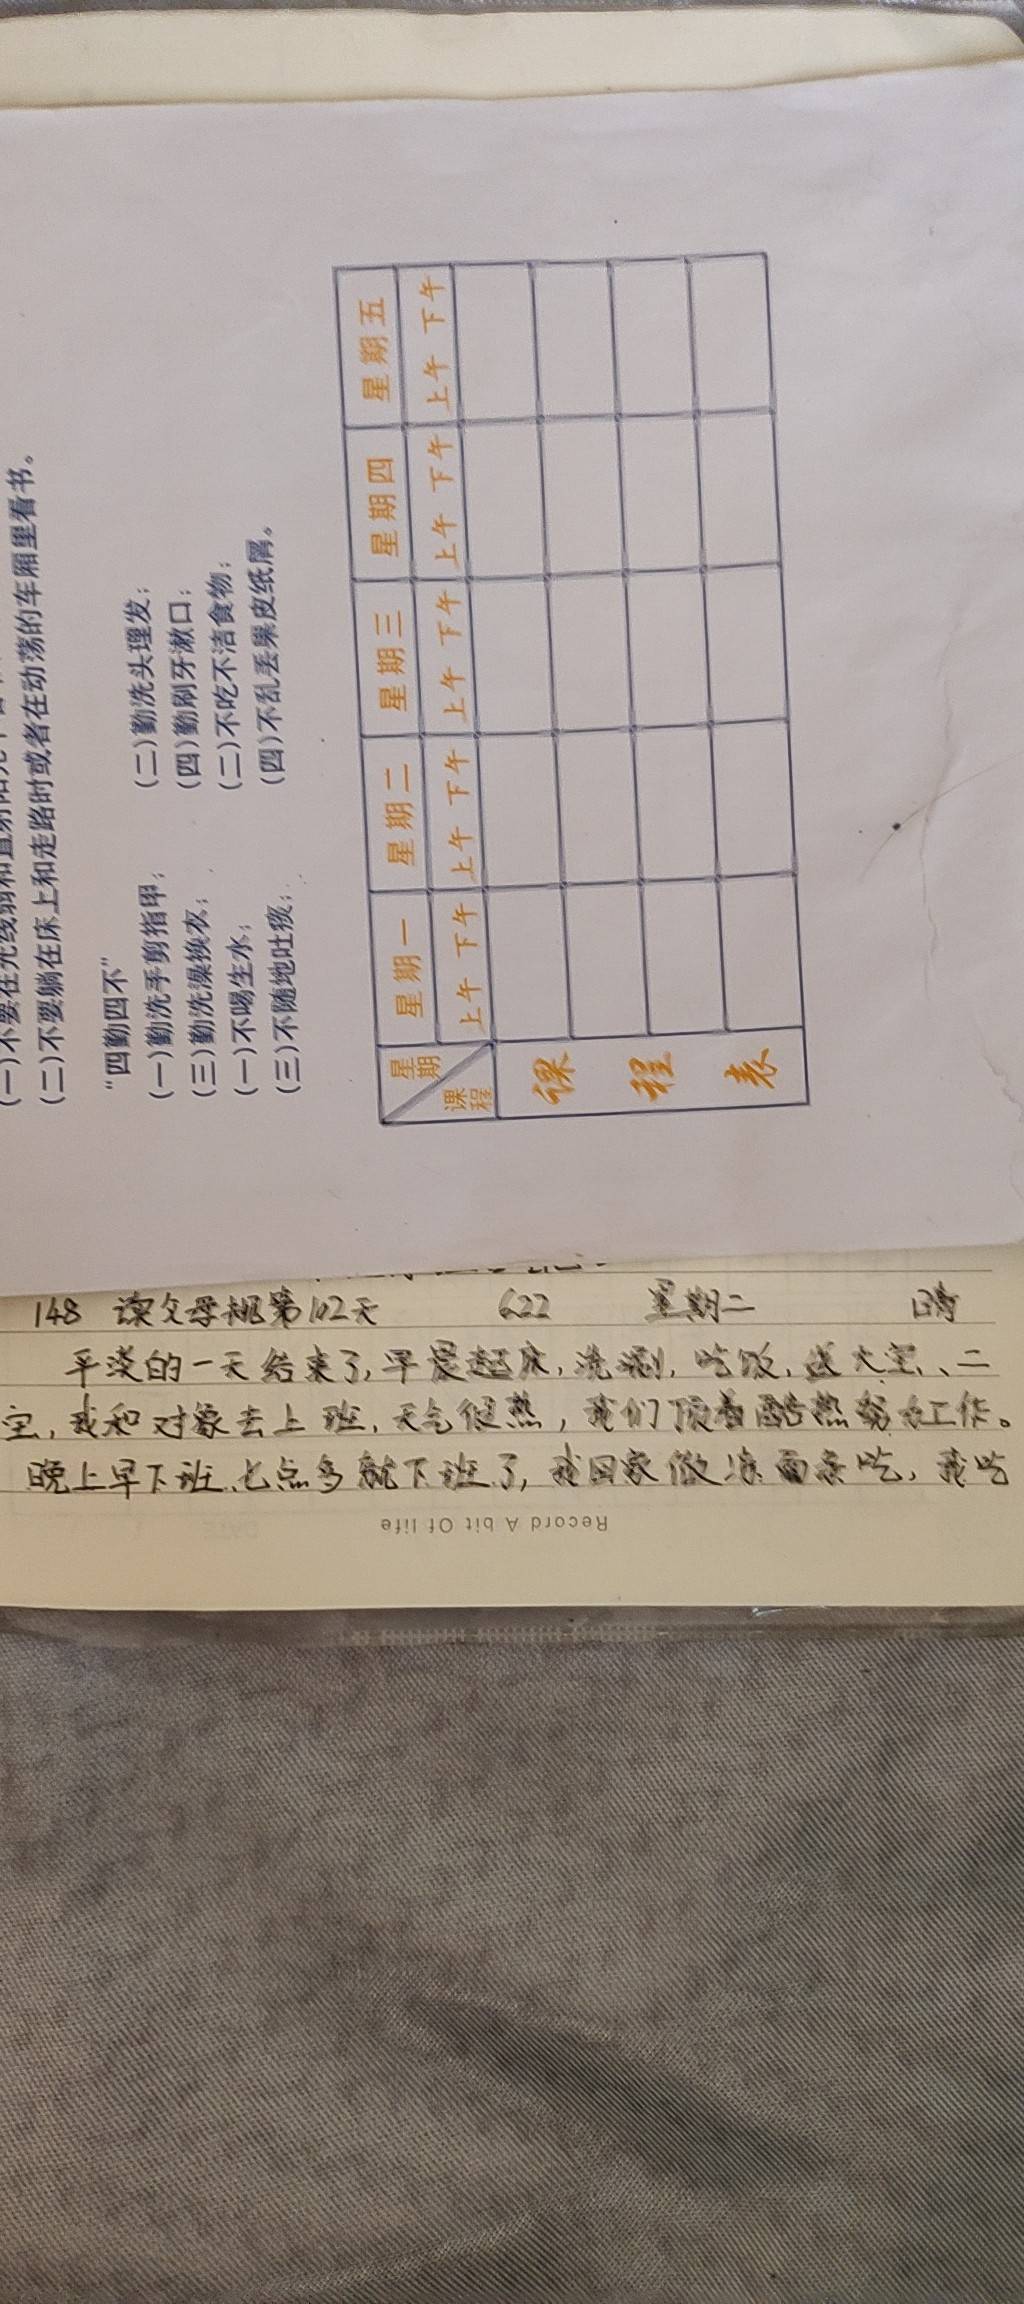 (二)不要躺在床上和走路时或者在动荡的车厢里看书。
“四勤四不”
(一)勤洗手剪指甲; (二)勤洗头理发;
(三)勤洗澡换衣; (四)勤刷牙漱口;
(一)不喝生水; (二)不吃不洁食物;
(三)不随地吐痰; (四)不乱丢果皮纸屑。
星期 星期一 星期二 星期三 星期四 星期五
课程 上午 下午 上午 下午 上午 下午 上午 下午 上午 下午
课
程
表
148 读父母规第102天 6.22 星期二 晴
平淡的一天结束了,早晨起床,洗涮,吃饭,送大宝、二
宝,我和对象去上班,天气很热,我们顶着酷热努力工作。
晚上早下班,七点多就下班了,我回家做凉面条吃,我吃
Record A bit Of life